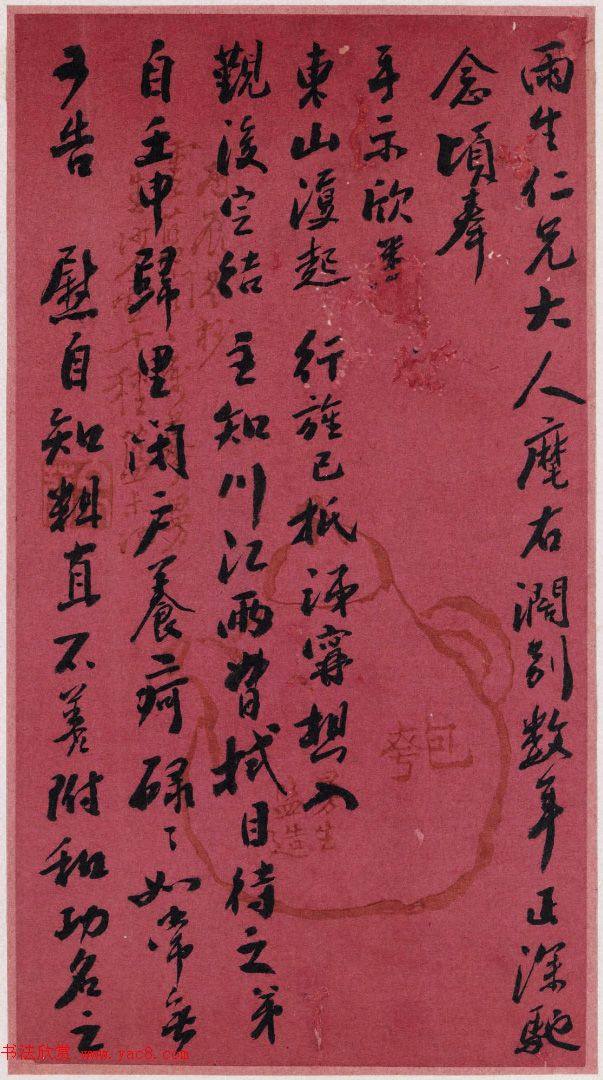 雨生仁兄大人麾右濶别数年正深馳
念頃奉
手示欣悉
東山復起 行旌已抵泲寧想入
覲後定結 主知川江兩督拭目待之弟
自壬申歸里閉户養疴碌〻如常無
可告 慰自知粗直不善附和功名之
匏
曼生
監造
书法欣赏 www.yac8.com